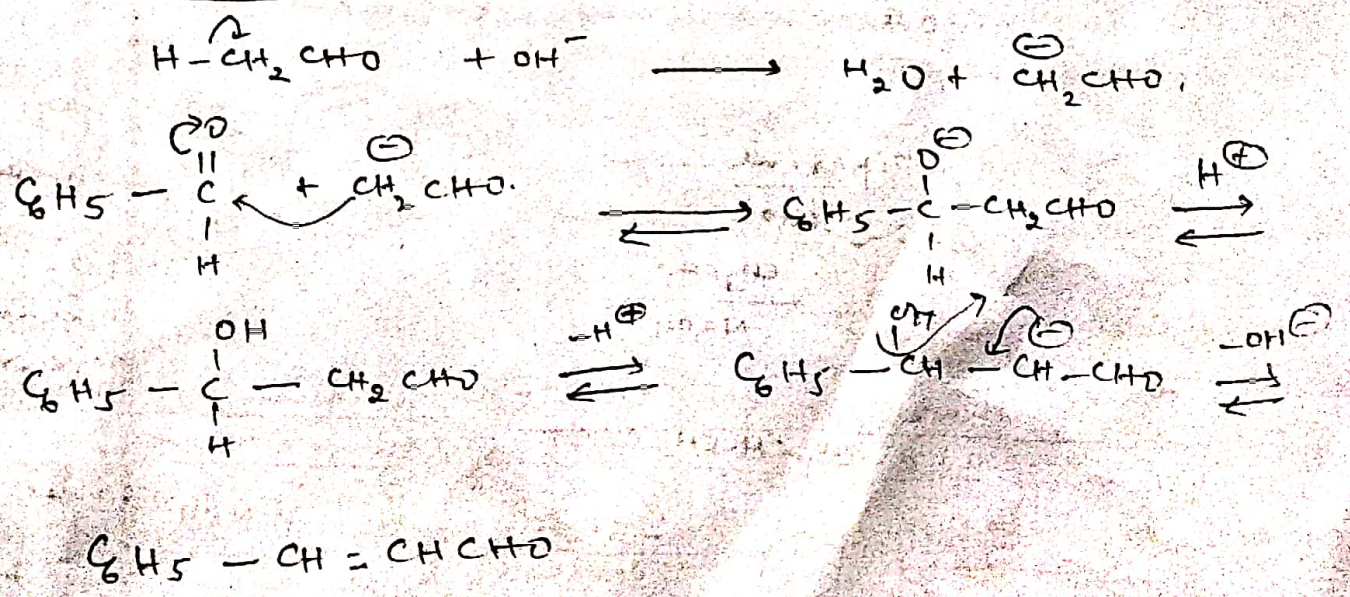 H-CH₂CHO + OH⁻ ⟶ H₂O + ⊖CH₂CHO.
C₆H₅-C(=O)(-H) + ⊖CH₂CHO. ⇌ C₆H₅-C(-O⊖)(-H)-CH₂CHO ⇌ H⊕
C₆H₅-C(-OH)(-H)-CH₂CHO ⇌ -H⊕ C₆H₅-CH(-OH)-CH⊖-CHO ⇌ -OH⊖
C₆H₅-CH=CHCHO